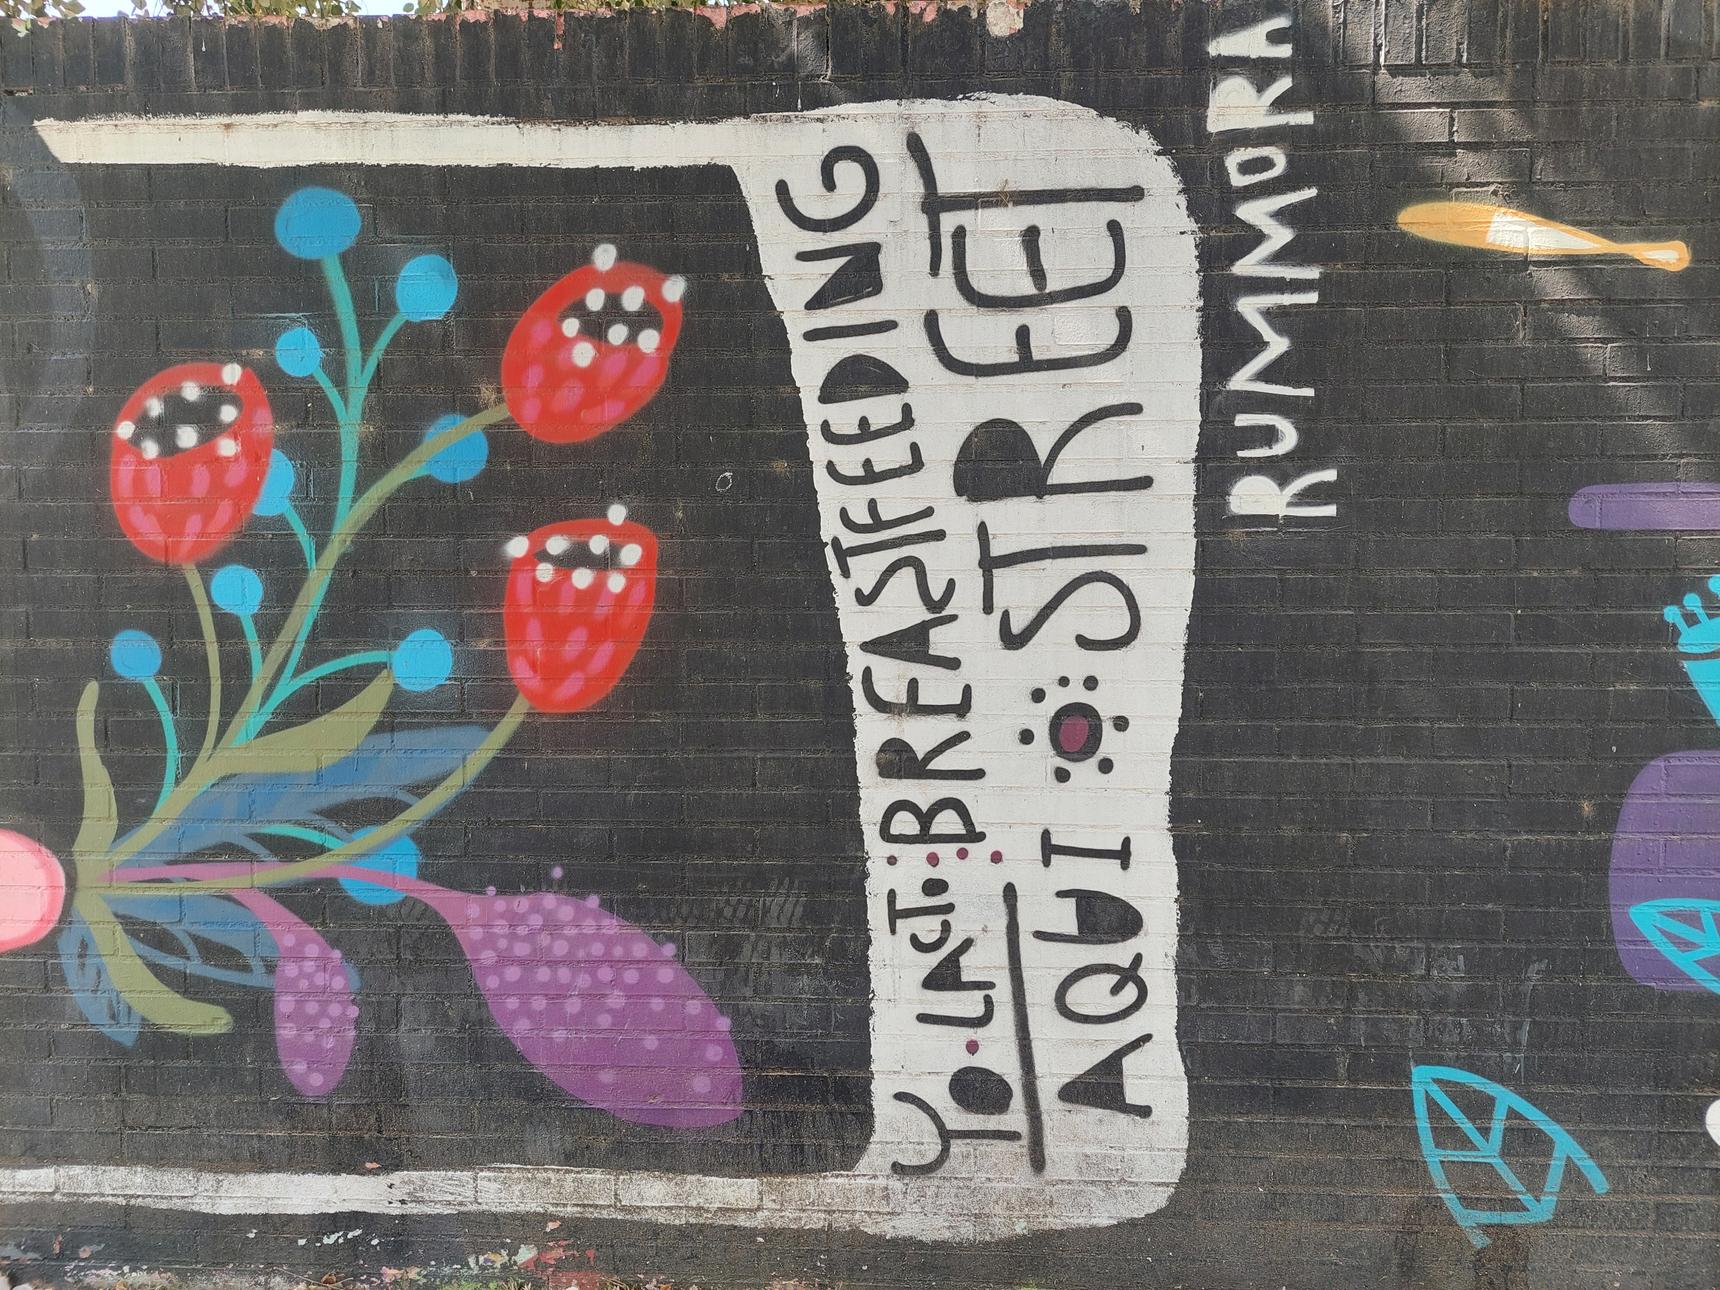 YO LACTO BREASTFEEDING
AQUI STREET
RUMMORA